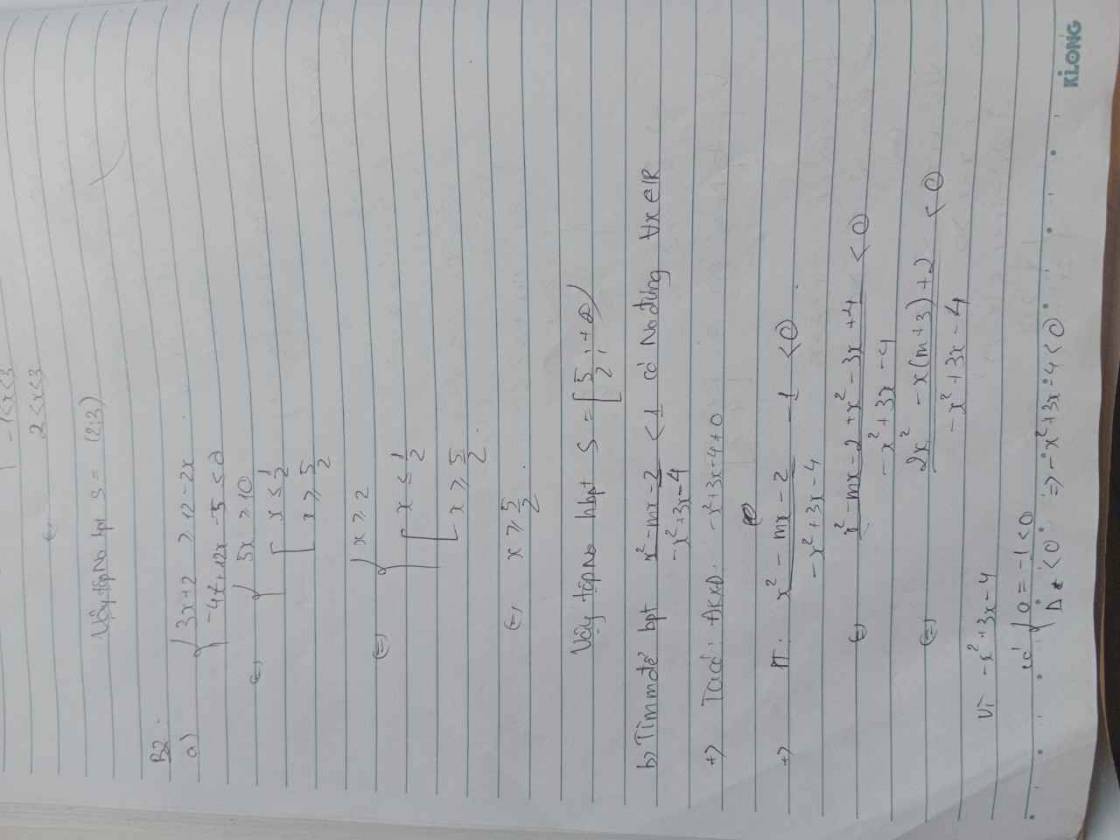 -1<x<3
(=) 2<x<3
Vậy tập No bpt S = (2;3)
B2:
a) { 3x+2 ≥ 12-2x
{ -4x²+12x-5 ≤ 0
(=) { 5x ≥ 10
[ x ≤ 1/2
[ x ≥ 5/2
(=) { x ≥ 2
[ x ≤ 1/2
[ x ≥ 5/2
(=) x ≥ 5/2
Vậy tập No hbpt S = [5/2; +∞)
b) Tìm m để bpt (x²-mx-2)/(-x²+3x-4) < 1 có No đúng ∀x∈ℝ
+) Ta có: ĐKXĐ: -x²+3x-4≠0
+) PT: (x²-mx-2)/(-x²+3x-4) -1 <0
(=) (x²-mx-2+x²-3x+4)/(-x²+3x-4) <0
(=) (2x²-x(m+3)+2)/(-x²+3x-4) <0
Vì -x²+3x-4
có { a = -1<0
{ Δ <0 => -x²+3x-4<0
KiLONG